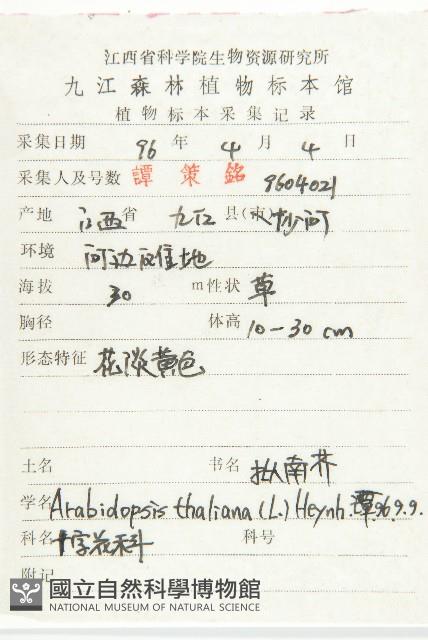 江西省科学院生物资源研究所
九江森林植物标本馆
植物标本采集记录
采集日期 96 年 4 月 4 日
采集人及号数 譚策銘 9604021
产地 江西省 九江县(市) 沙河
环境 河边
海拔 30 m性状 草
胸径 体高 10-30 cm
形态特征 花淡黄色
土名 书名 拟南芥
学名 Arabidopsis thaliana (L.) Heynh. 譚96.9.9.
科名 十字花科 科号
附记
國立自然科學博物館
NATIONAL MUSEUM OF NATURAL SCIENCE